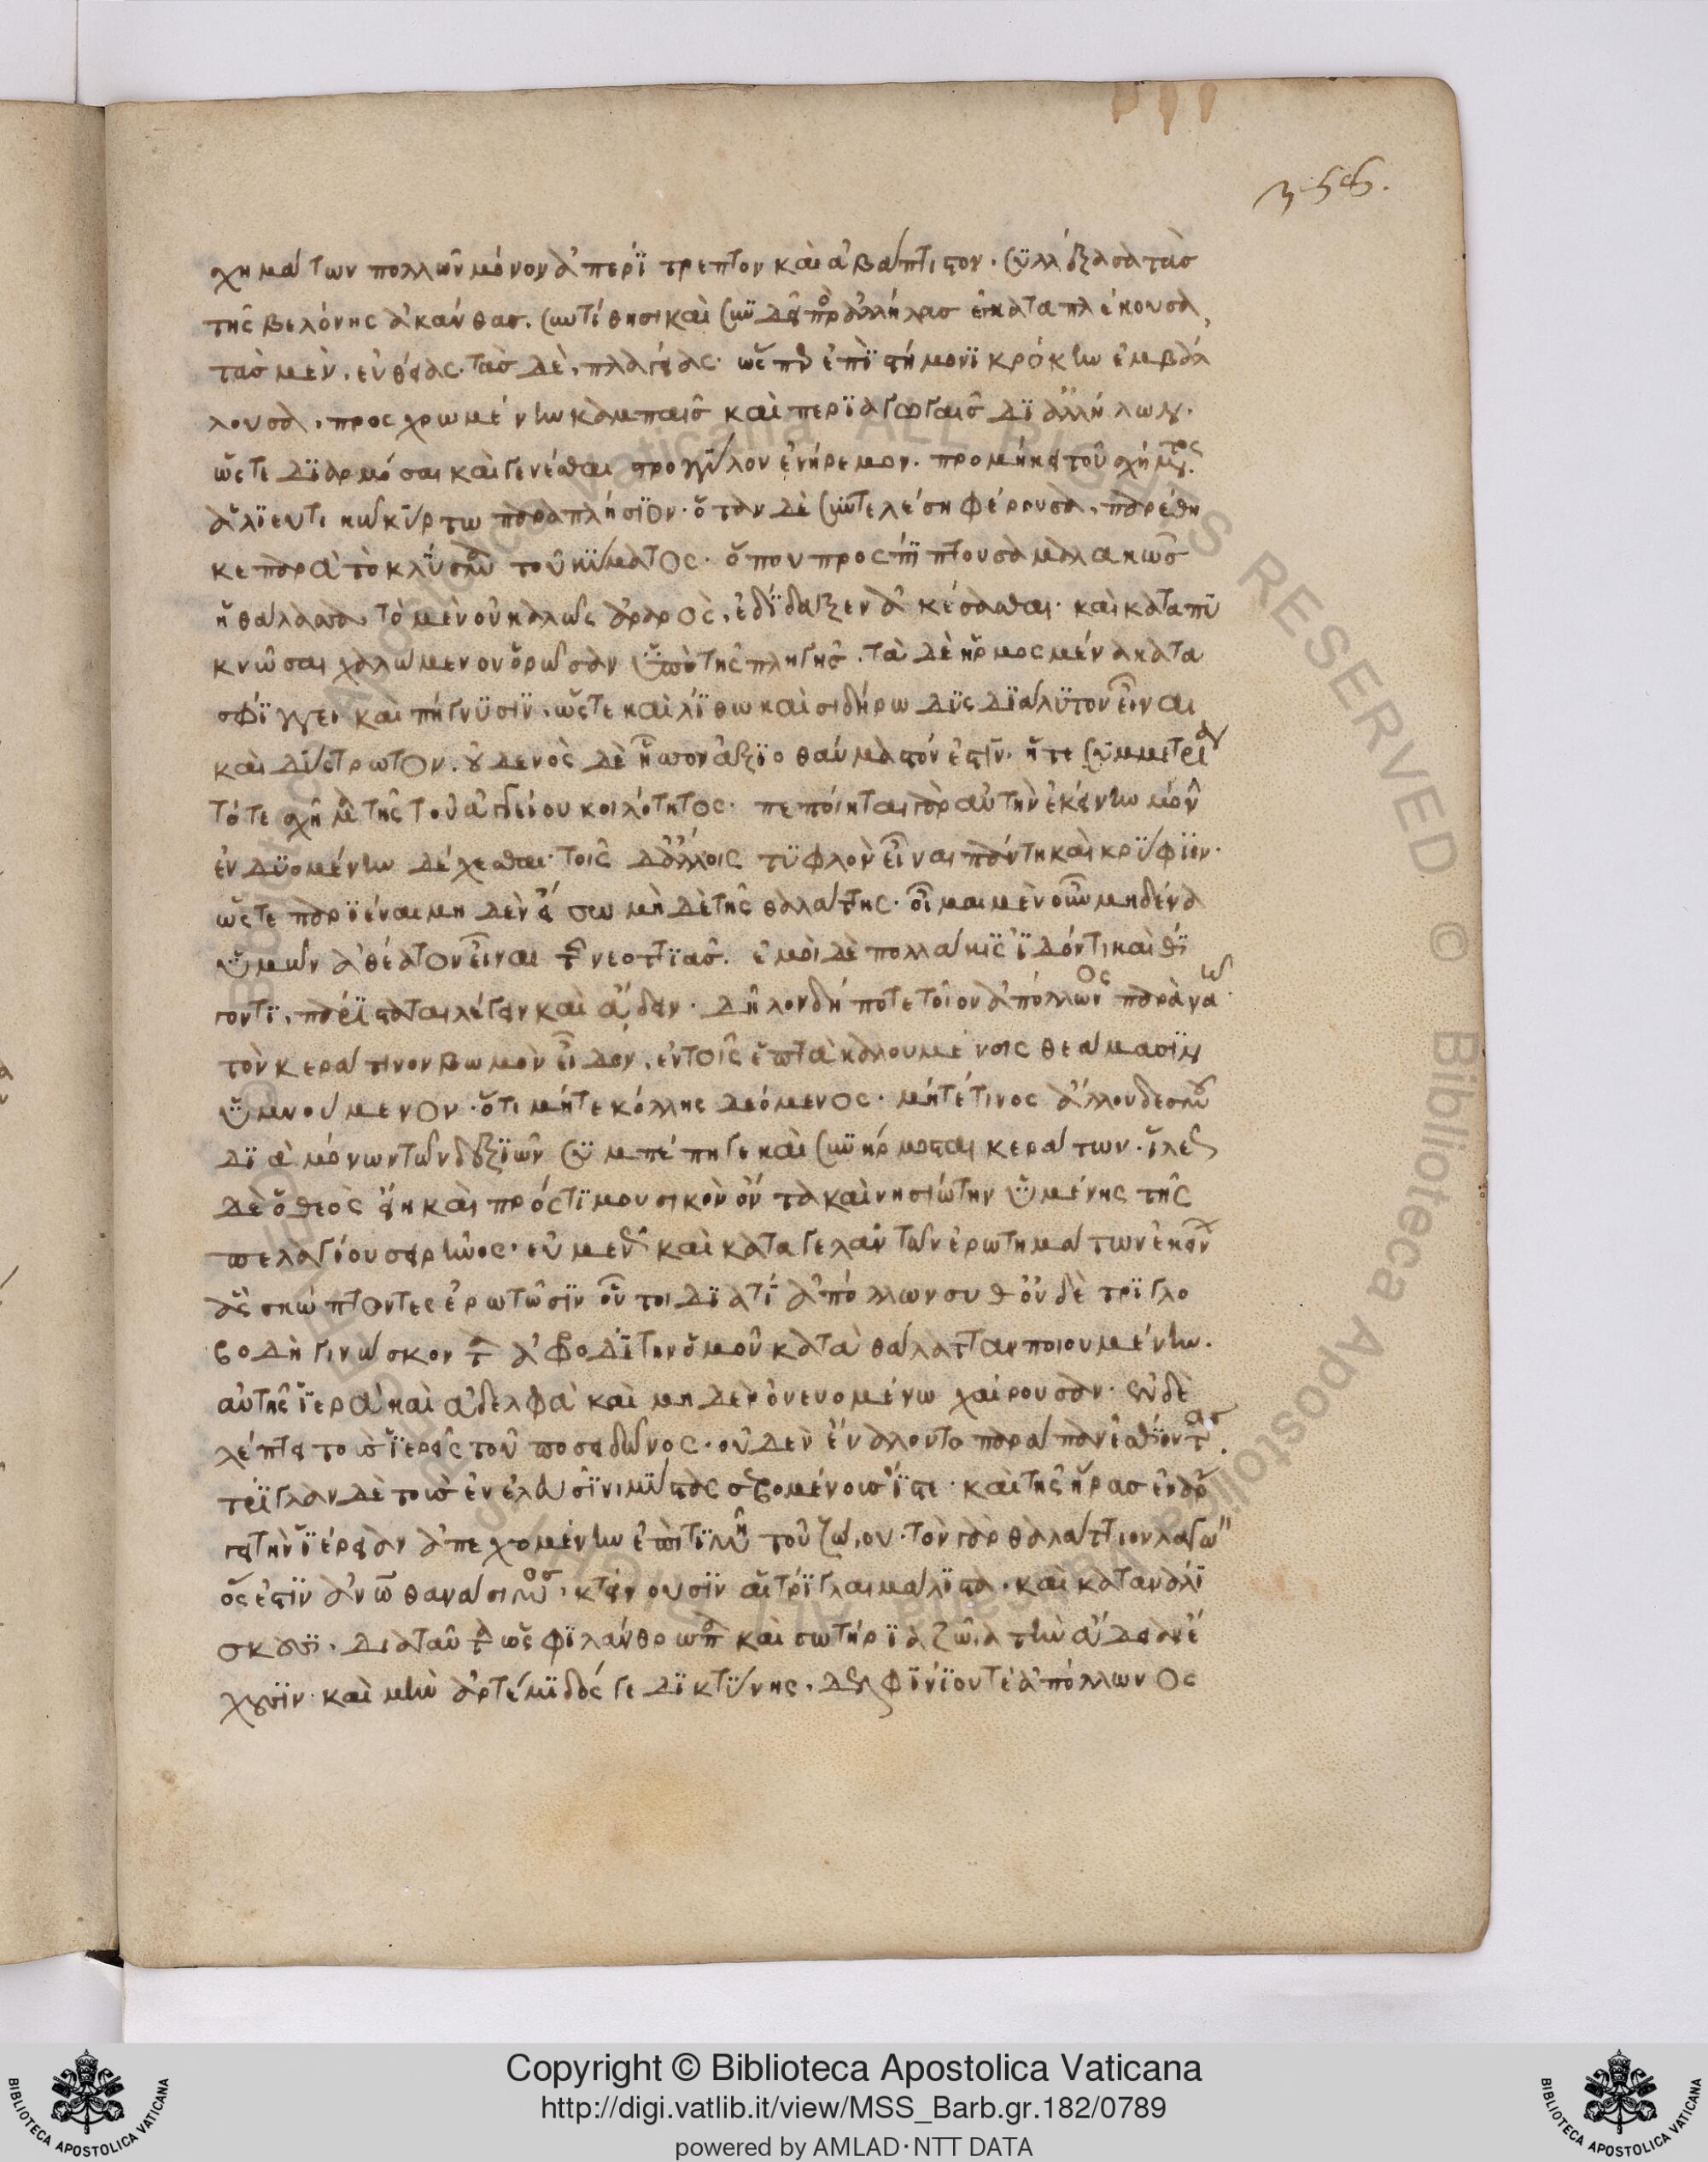 356.
χημάτων πολλῶν μόνον ἀπερίτρεπτον καὶ ἀβάπτιστον. συλλέξασα τὰς
τῆς βελόνης ἀκάνθας. συντίθησι καὶ συνδεῖ πρὸς ἀλλήλας ἐγκαταπλέκουσα,
τὰς μὲν, εὐθείας. τὰς δὲ, πλαγίας. ὥσπερ ἐπὶ στήμονι κρόκην ἐμβάλ
λουσα, προσχρωμένην καμπαῖς καὶ περιαγωγαῖς δι' ἀλλήλων.
ὥστε διαρμόσαι καὶ γενέσθαι στρογγύλον ἐνήρεμον. προμήκει τοῦ σχήματος.
ἁλιευτικῶ κύρτω παραπλήσιον. ὅταν δὲ συντελέση φέρουσα, παρέθη
κε παρὰ τὸ κλύσμα τοῦ κύματος. ὅπου προσπίπτουσα μαλακῶς
ἡ θάλασσα, τὸ μὲν οὐ καλῶς ἀραρὸς, ἐδίδαξεν ἀκέσασθαι. καὶ καταπυ
κνῶσαι χαλώμενον ὁρῶσαν ὑπὸ τῆς πληγῆς. τὰ δὲ ἡρμοσμένα κατα
σφίγγει καὶ πήγνυσιν. ὥστε καὶ λίθω καὶ σιδήρω δυσδιάλυτον εἶναι
καὶ δύστρωτον. οὐδενὸς δὲ ἧσσον ἀξιοθαύμαστόν ἐστιν. ἥτε συμμετρία
τό τε σχῆμα τῆς τοῦ ἀγγείου κοιλότητος. πεποίηται γὰρ αὐτὴν ἐκείνην μόνην
ἐνδυομένην δέχεσθαι. τοῖς δ' ἄλλοις τυφλὸν εἶναι πάντη καὶ κρύφιον.
ὥστε παριέναι μηδὲν εἴσω μὴ δὲ τῆς θαλάττης. οἶμαι μὲν οὖν μηδένα
ὑμῶν ἀθέατον εἶναι τῆς νεοττιᾶς. ἐμοὶ δὲ πολλάκις ἰδόντι καὶ θι
γόντι, παρίσταται λέγειν καὶ ἄδειν. δῆλον δή ποτε τοῖον ἀπόλλωνος παρὰ ναῶ
τὸν κεράτινον βωμὸν εἶδον, ἐν τοῖς ἑπτὰ καλουμένοις θεάμασιν
ὑμνούμενον. ὅτι μήτε κόλλης δεόμενος. μήτέ τινος ἄλλου δεσμοῦ
διὰ μόνων τῶν δεξιῶν συμπέπηγε καὶ συνήρμοσται κεράτων. ἵλεως
δὲ ὁ θεὸς εἴη καὶ πρός τι μουσικὸν ὄντα καὶ νησιώτην ὑμένης τῆς
πελαγίου σειρῆνος. εὐμενῶς καὶ καταγελᾶν τῶν ἐρωτημάτων ἐκείνων
ἃς σκώπτοντες ἐρωτῶσιν οὗτοι διατί ἀπόλλων συθ όν δὲ τριγλο
βο δὴ γινώσκον τὴν ἀφροδίτην ὁμοῦ κατὰ θάλατταν ποιουμένην.
αὐτῆς ἱερὰ καὶ ἀδελφὰ καὶ μηδὲν ὀνευομένω χαίρουσαν. ἐν δὲ
λέπτει τοὺς ἱερεῖς τοῦ ποσειδῶνος. οὐδὲν ἔναλον τὸ παράπαν ἐσθίοντας.
τρίγλαν δὲ τοὺς ἐν ἐλευσῖνι μύστας σεβομένους ἴστε. καὶ τῆς ἥρας ἐν ἄρ
γει τὴν ἱέρειαν ἀπεχομένην ἐπὶ τιμῆ τοῦ ζώιου. τὸν γὰρ θαλάττιον λαγὼ
ὅς ἐστιν ἀνω θανάσιμος, κτείνουσιν αἱ τρίγλαι μάλιστα. καὶ καταναλί
σκουσι. διὰ ταῦτα ὡς φιλάνθρωπα καὶ σωτήρια ζῶια τὴν ἄδειαν ἔ
χουσιν. καὶ μὴν ἀρτέμιδός γε δικτύνης. δελφινίου τέ ἀπόλλωνος
Copyright © Biblioteca Apostolica Vaticana
http://digi.vatlib.it/view/MSS_Barb.gr.182/0789
powered by AMLAD·NTT DATA